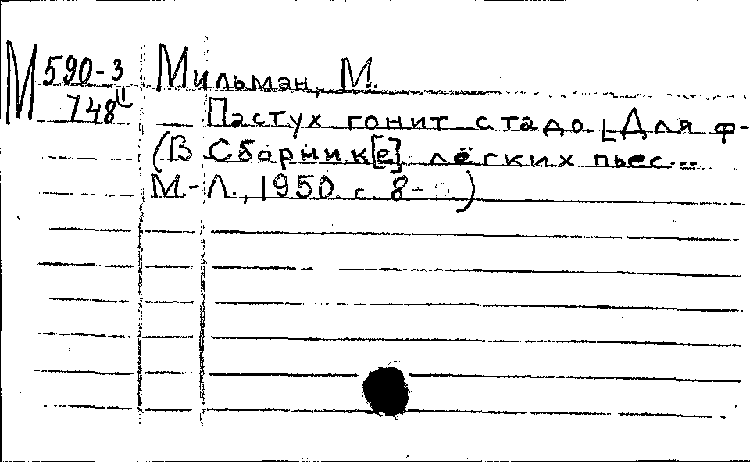 М 590-3 Мильман, М.
748 Пастух гонит стадо. [Для ф-
(В Сборник[е] лёгких пьес...
М.-Л., 1950 с. 8- )